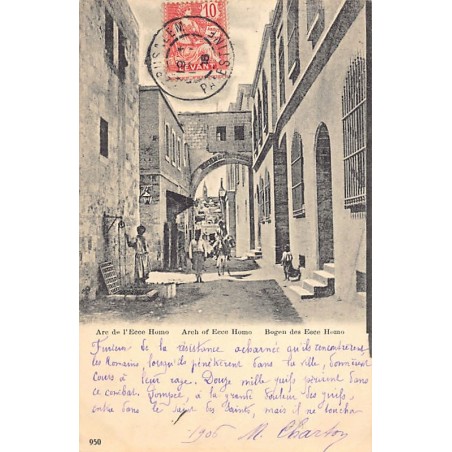 10
LEVANT
JERUSALEM
PALESTINE
Arc de l'Ecce Homo Arch of Ecce Homo Bogen des Ecce Homo
Furieux de la résistance acharnée qu'ils rencontrèrent
les Romains lorsqu'ils pénétrèrent dans la ville, donnèrent
cours à leur rage. Douze mille juifs périrent dans
ce combat. Pompée, à la grande douleur des juifs,
entre dans le Saint des Saints, mais il ne toucha
1905 M. Charton
950